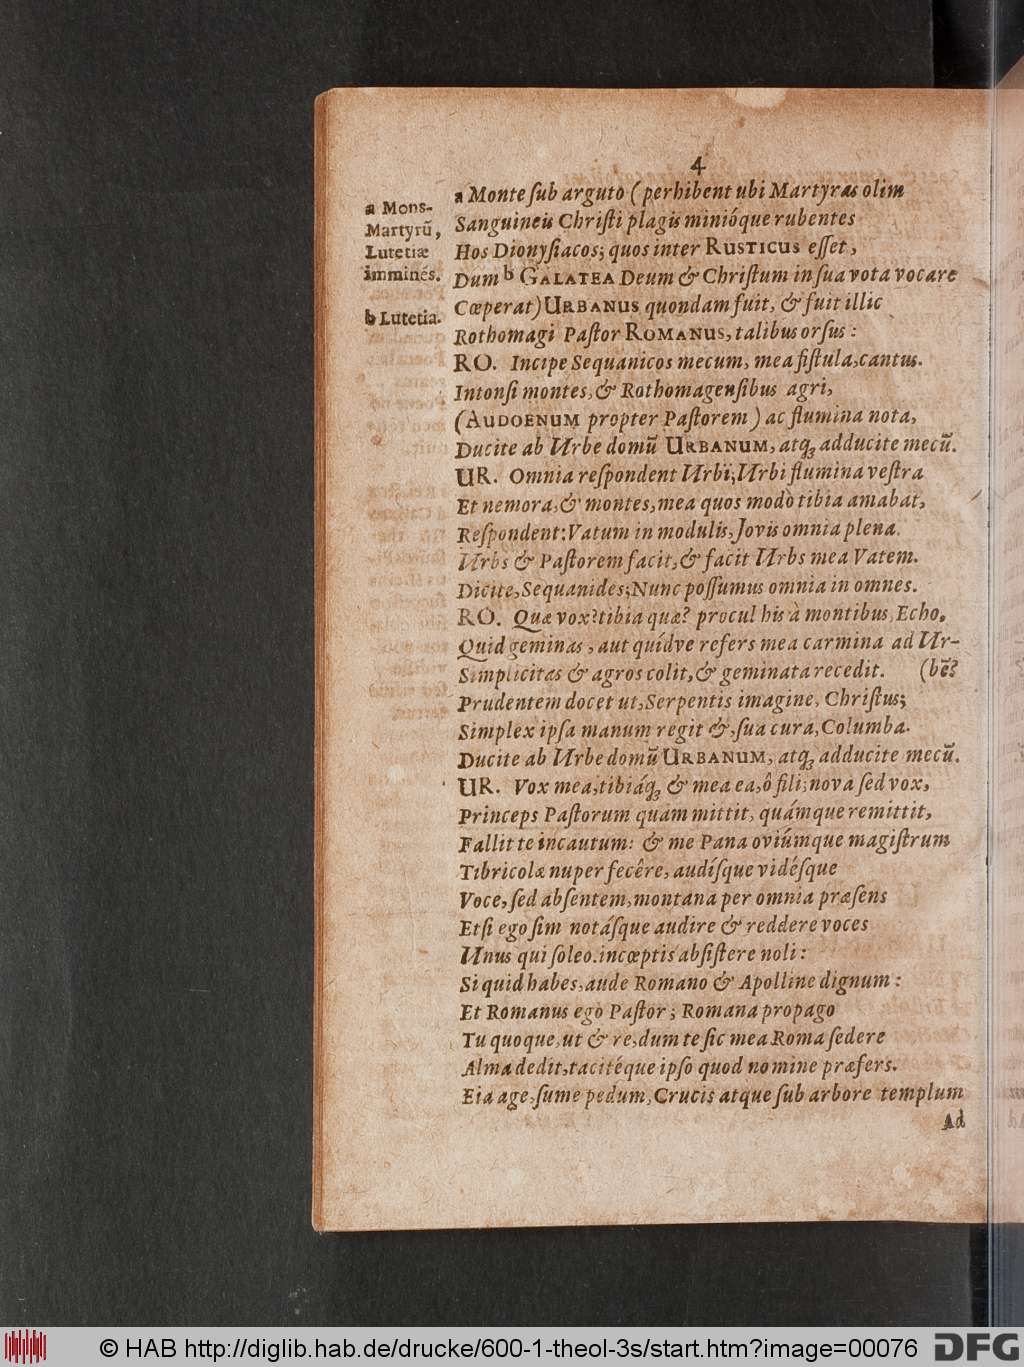 4
a Mons-
Martyrū,
Lutetiæ
imminēs.
b Lutetia.
a Monte ſub arguto (perhibent ubi Martyras olim
Sanguineis Chriſti plagis minióque rubentes
Hos Dionyſiacos; quos inter RUSTICUS eſſet,
Dum b GALATEA Deum & Chriſtum in ſua vota vocare
Cœperat) URBANUS quondam fuit, & fuit illic
Rothomagi Paſtor ROMANUS, talibus orſus:
RO. Incipe Sequanicos mecum, mea fiſtula, cantus.
Intonſi montes, & Rothomagenſibus agri,
(AUDOENUM propter Paſtorem) ac flumina nota,
Ducite ab Urbe domū URBANUM, atqꝫ adducite mecū.
UR. Omnia reſpondent Urbi; Urbi flumina veſtra
Et nemora, & montes, mea quos modò tibia amabat,
Reſpondent: Vatum in modulis, Jovis omnia plena.
Urbs & Paſtorem facit, & facit Urbs mea Vatem.
Dicite, Sequanides; Nunc poſſumus omnia in omnes.
RO. Quæ vox? tibia quæ? procul his à montibus, Echo,
Quid geminas, aut quídve refers mea carmina ad Ur-
Simplicitas & agros colit, & geminata recedit. (bē?
Prudentem docet ut, Serpentis imagine, Chriſtus;
Simplex ipſa manum regit &, ſua cura, Columba.
Ducite ab Urbe domū URBANUM, atqꝫ adducite mecū.
UR. Vox mea, tibiáqꝫ & mea ea, ô fili; nova ſed vox,
Princeps Paſtorum quam mittit, quámque remittit,
Fallit te incautum: & me Pana oviúmque magiſtrum
Tibricolæ nuper fecêre, audíſque vidéſque
Voce, ſed abſentem, montana per omnia præſens
Etſi ego ſim notáſque audire & reddere voces
Unus qui ſoleo. incœptis abſiſtere noli:
Si quid habes, aude Romano & Apolline dignum:
Et Romanus ego Paſtor; Romana propago
Tu quoque, ut & re, dum te ſic mea Roma ſedere
Alma dedit, tacitéque ipſo quod nomine præfers.
Eia age, ſume pedum, Crucis atque ſub arbore templum
Ad
© HAB http://diglib.hab.de/drucke/600-1-theol-3s/start.htm?image=00076
DFG